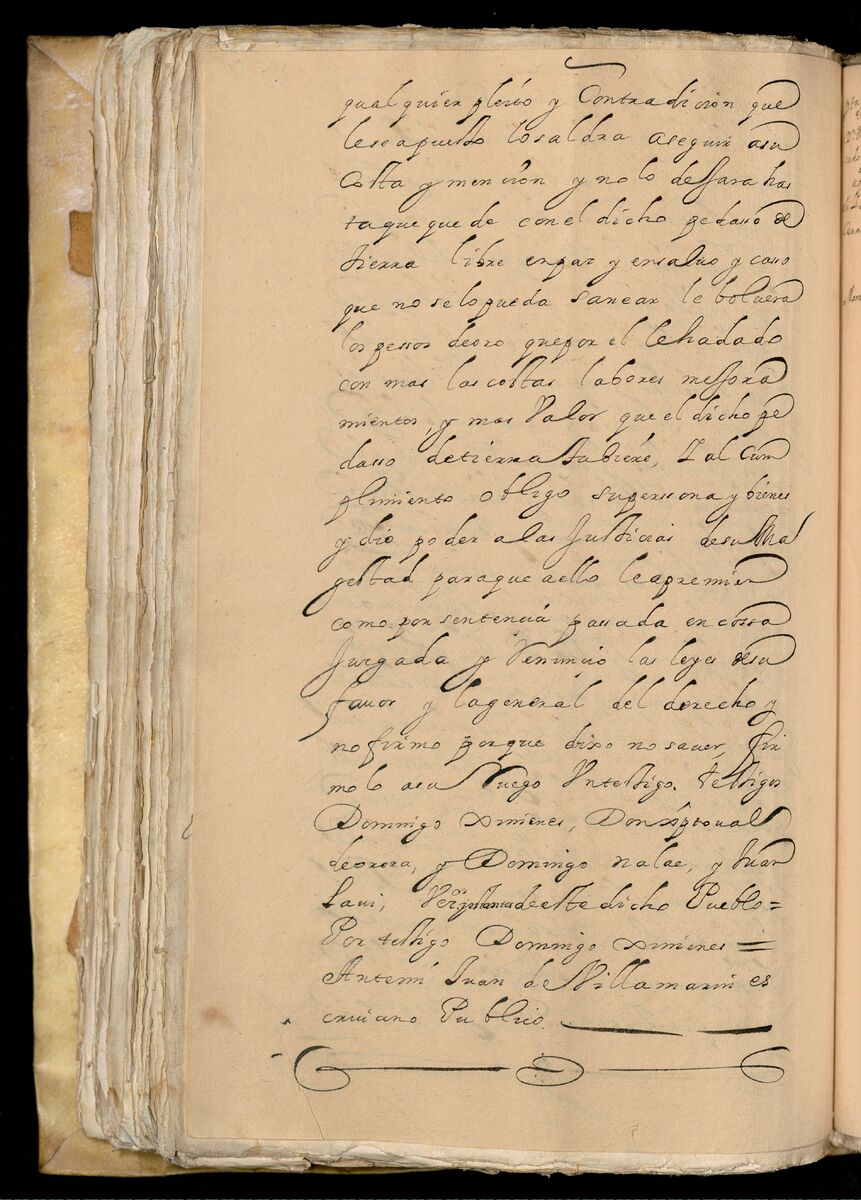 qualquier pleito y Contradicion que
lesea puesto losaldra aseguir asu
Costa y mencion y no lo dessara has
ta que quede con el dicho pedasso de
tierra libre en paz y en saluo y casso
que no se lo pueda sanear le boluera
los pessos de oro que por el le ha dado
con mas las costas labores messora
mientos, y mas Valor que el dicho pe
dasso de tierra tubiere, I al Cum
plimiento obligo su perssona y bienes
y dio poder a las Justicias de su Ma
gestad para que a ello le apremien
como por sentencia passada en cossa
Jurgada y Renuncio las leyes de su
fauor y la general del derecho y
no firmo porque dixo no sauer, fir
molo asu Ruego Un testigo. testigos
Domingo Ximenes, Don Xptoual
de orera, y Domingo nalae, y Juan
Laui, de este dicho Pueblo =
Por testigo Domingo Ximenes =
Antemi Juan de Villamarin es
criuano Publico.